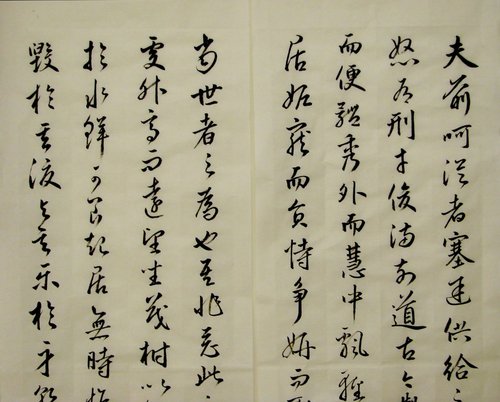 夫前呵從者塞途供給之
怒有刑才俊滿前道古今
而便體秀外而慧中飄輕
居妬寵而負恃爭妍而
當世者之為也吾非惡此
處升高而遠望坐茂樹以
於水鮮可食起居無時惟
毀於其後與其樂於身孰